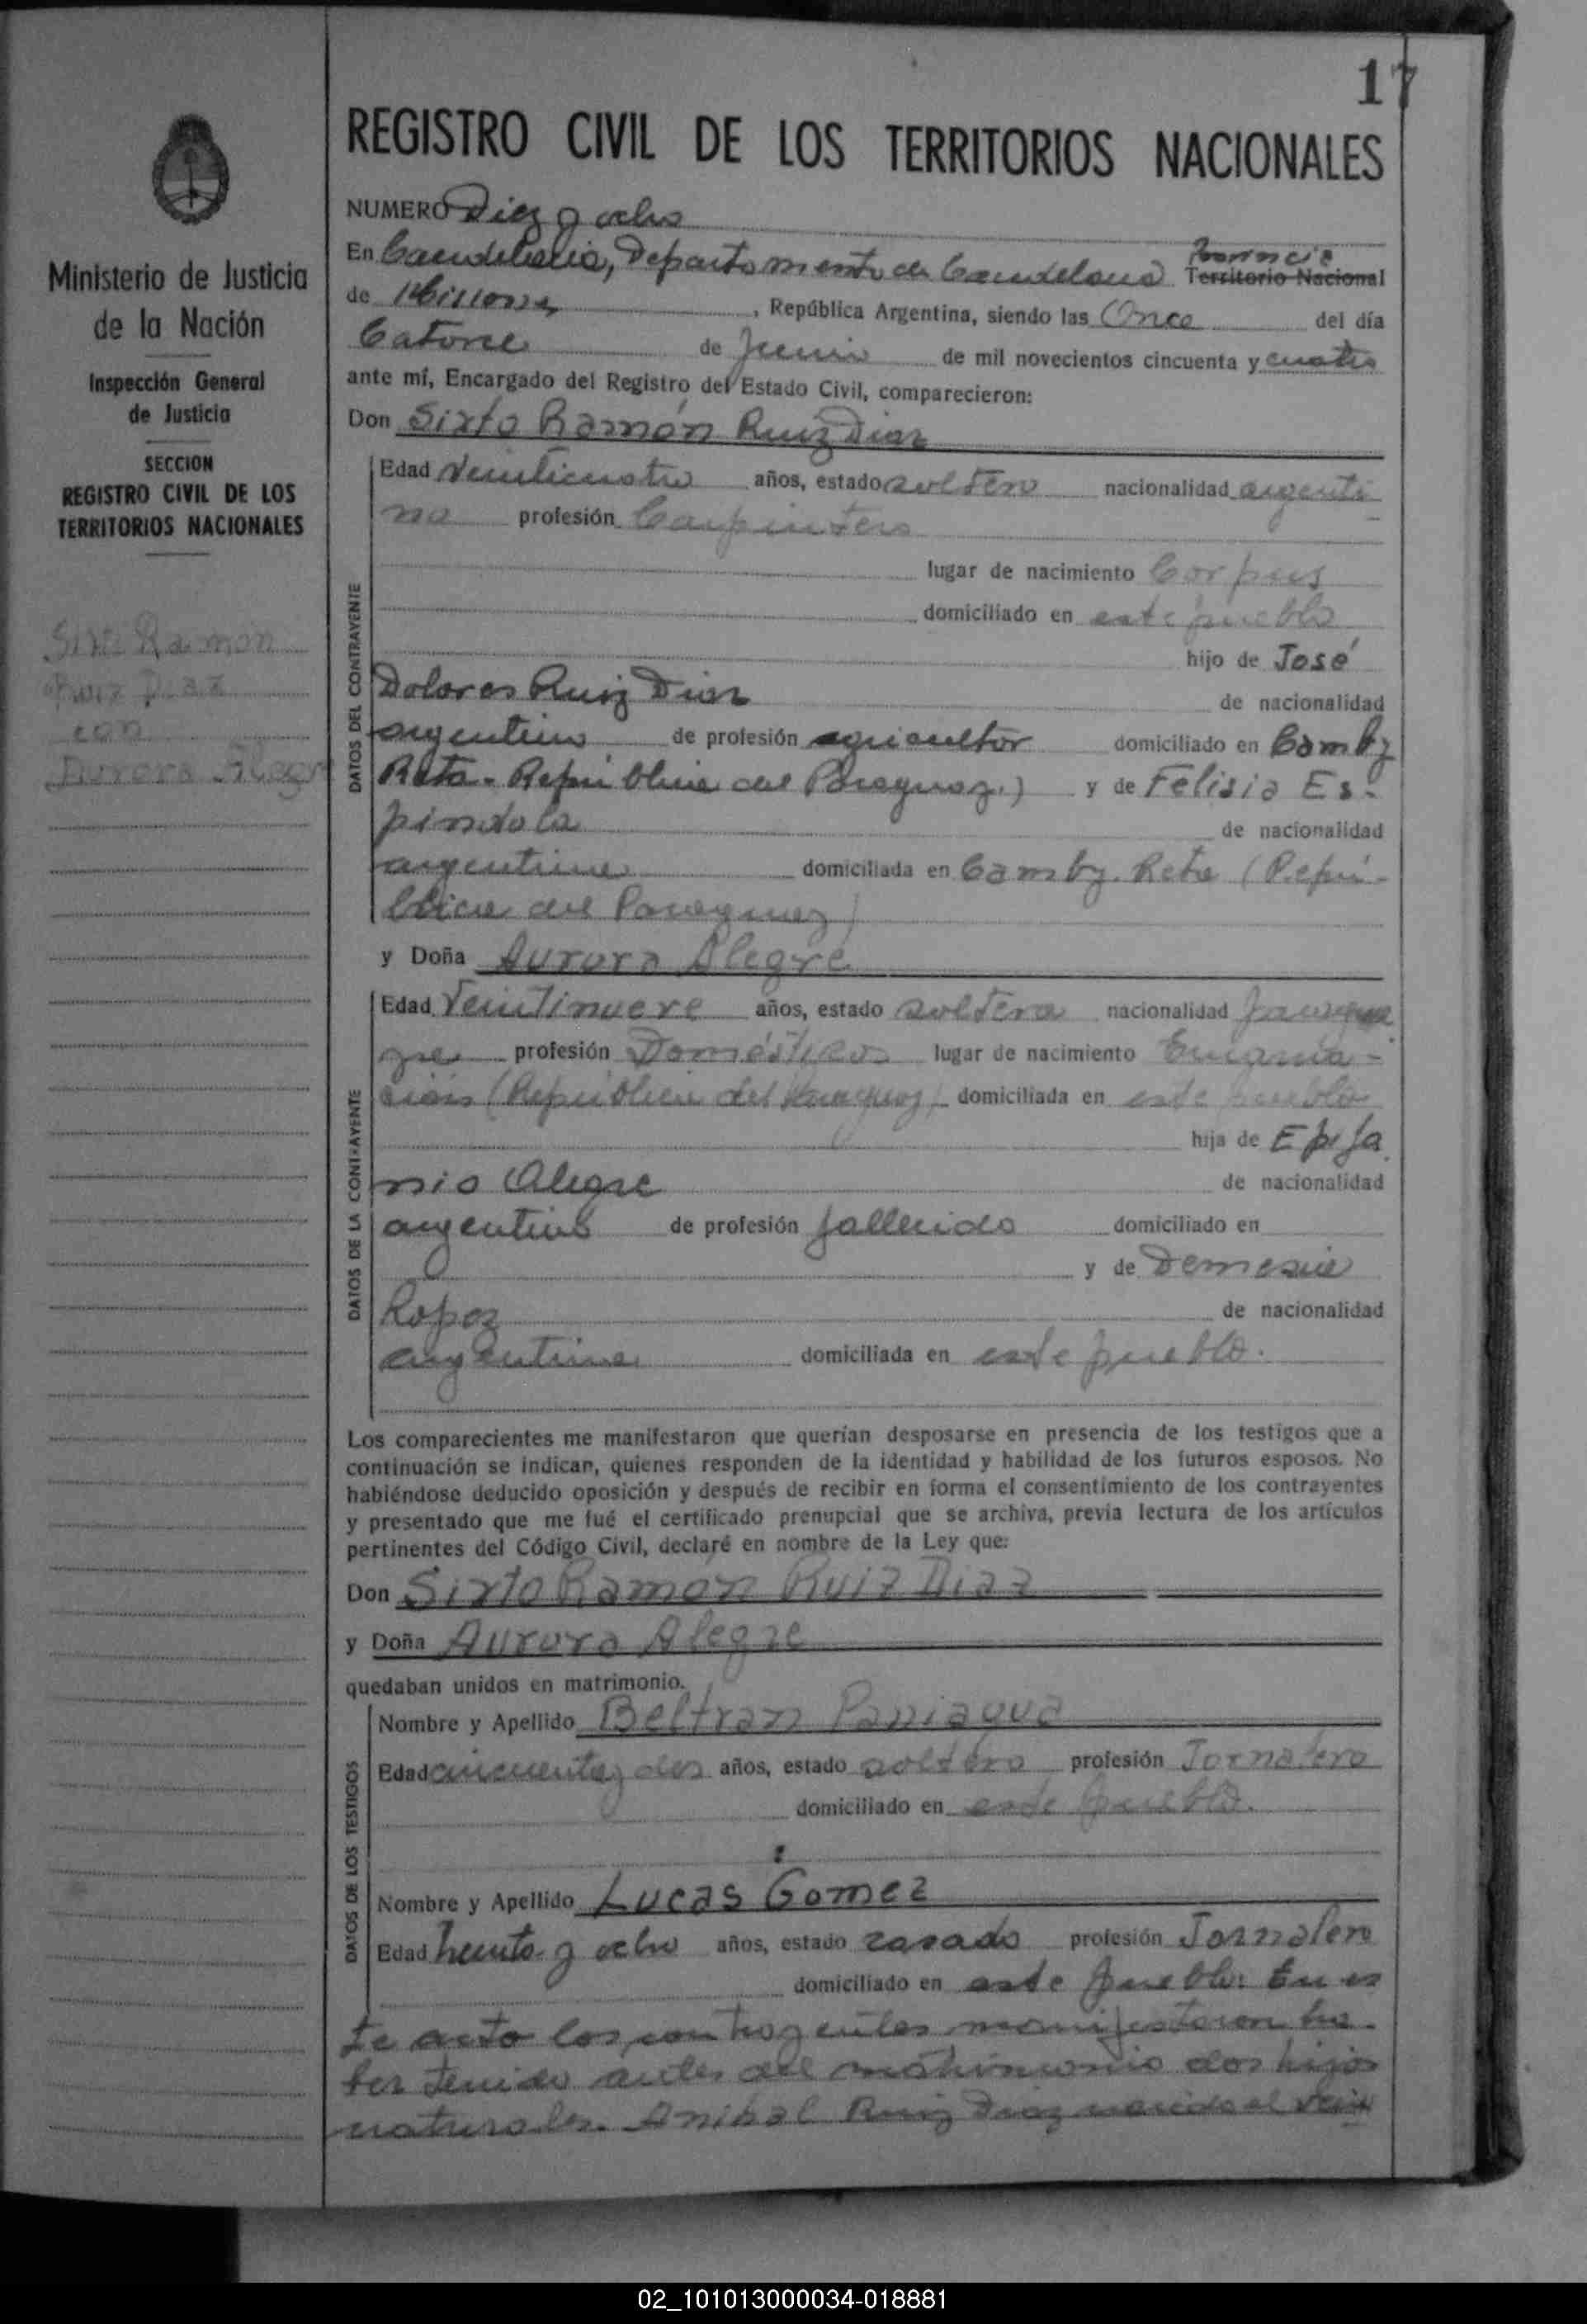 17
REGISTRO CIVIL DE LOS TERRITORIOS NACIONALES
Ministerio de Justicia
de la Nación
Inspección General
de Justicia
SECCION
REGISTRO CIVIL DE LOS
TERRITORIOS NACIONALES
Ramon
Ruiz Diaz
con
Aurora Alegre
NUMERO Diez y ocho
En Candelaria, Departamento de Candelaria Provincia Territorio Nacional
de Misiones, República Argentina, siendo las Once del día
Catorce de Junio de mil novecientos cincuenta y cuatro
ante mí, Encargado del Registro del Estado Civil, comparecieron:
Don Sixto Ramón Ruiz Diaz
DATOS DEL CONTRAYENTE
Edad Veinticuatro años, estado soltero nacionalidad argenti-
no profesión Carpintero
lugar de nacimiento Corpus
domiciliado en este pueblo
hijo de José
Dolores Ruiz Diaz de nacionalidad
argentino de profesión agricultor domiciliado en Camby
Reta - República del Paraguay.) y de Felisia Es-
pindola de nacionalidad
argentina domiciliada en Camby Reta (Repú-
blica del Paraguay)
y Doña Aurora Alegre
DATOS DE LA CONTRAYENTE
Edad Veintinueve años, estado soltera nacionalidad paragua
ya profesión Domésticos lugar de nacimiento Encarna-
ción (República del Paraguay) domiciliada en este pueblo
hija de Epifa
nio Alegre de nacionalidad
argentino de profesión fallecido domiciliado en
y de Demesia
Lopez de nacionalidad
argentina domiciliada en este pueblo.
Los comparecientes me manifestaron que querían desposarse en presencia de los testigos que a
continuación se indican, quienes responden de la identidad y habilidad de los futuros esposos. No
habiéndose deducido oposición y después de recibir en forma el consentimiento de los contrayentes
y presentado que me fué el certificado prenupcial que se archiva, previa lectura de los artículos
pertinentes del Código Civil, declaré en nombre de la Ley que:
Don Sixto Ramon Ruiz Diaz
y Doña Aurora Alegre
quedaban unidos en matrimonio.
DATOS DE LOS TESTIGOS
Nombre y Apellido Beltran Paniagua
Edad cincuenta y dos años, estado soltero profesión Jornalero
domiciliado en este pueblo.
Nombre y Apellido Lucas Gomez
Edad treinta y ocho años, estado casado profesión Jornalero
domiciliado en este pueblo: En es
te acto los contrayentes manifestaron ha-
ber tenido antes del matrimonio dos hijos
naturales. Anibal Ruiz Diaz nacido el vein
02_101013000034-018881